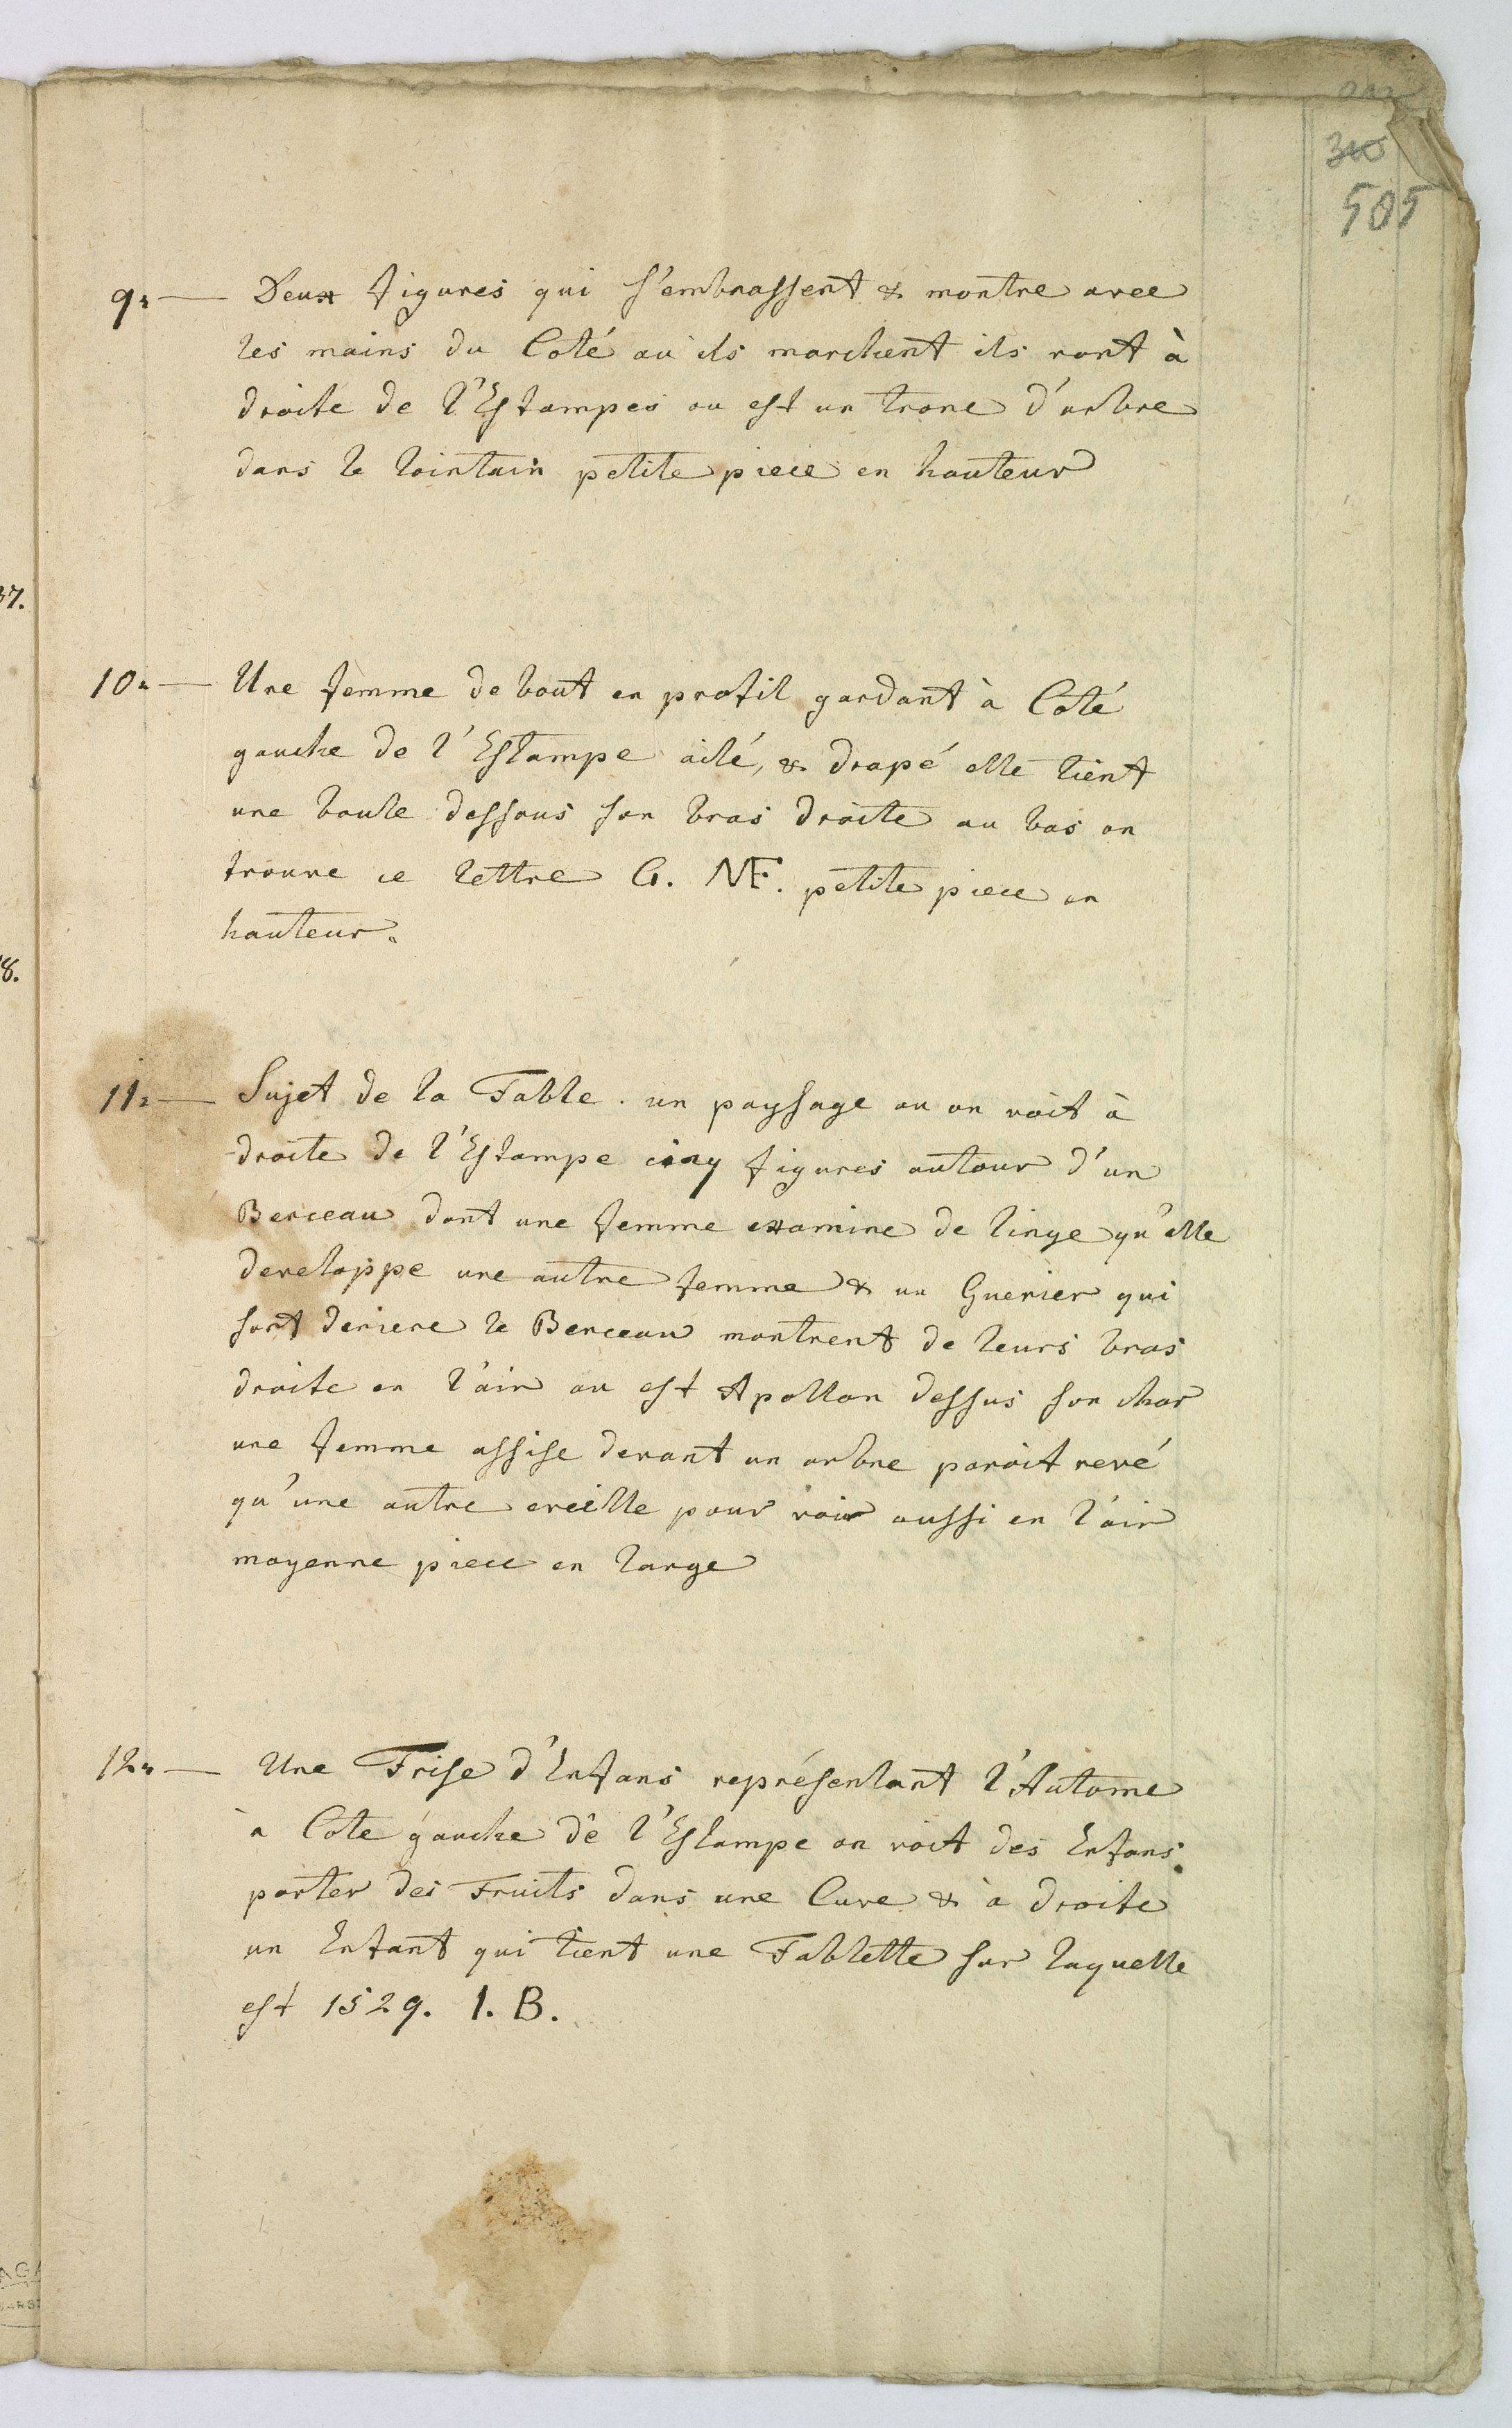 505
9. — Deux figures qui s'embrassent & montre avec
les mains du Coté au ils marchent ils vont à
droite de l'Estampes ou est un tronc d'arbre
dans le lointain petite piece en hauteur
37.
10. — Une femme de bout en profil gardant à Coté
gauche de l'Estampe ailé, & drapé elle tient
une boule dessous son bras droite au bas on
trouve ce lettre G. NF. petite piece en
hauteur.
8.
11. — Sujet de la Fable. un paysage ou on voit à
droite de l'Estampe cinq figures autour d'un
Berceau dont une femme examine de linge qu'elle
developpe une autre femme & un Guerier qui
sont deriere le Berceau montrent de leurs bras
droite en l'air ou est Apollon dessus son char
une femme assise devant un arbre paroit revé
qu'une autre eveille pour voir aussi en l'air
moyenne piece en large
12. — Une Frise d'Enfans représentant l'Autome
à Cote gauche de l'Estampe on voit des Enfans
porter des Fruits dans une Cuve & à droite
un Enfant qui tient une Tablette sur laquelle
est 1529. I. B.